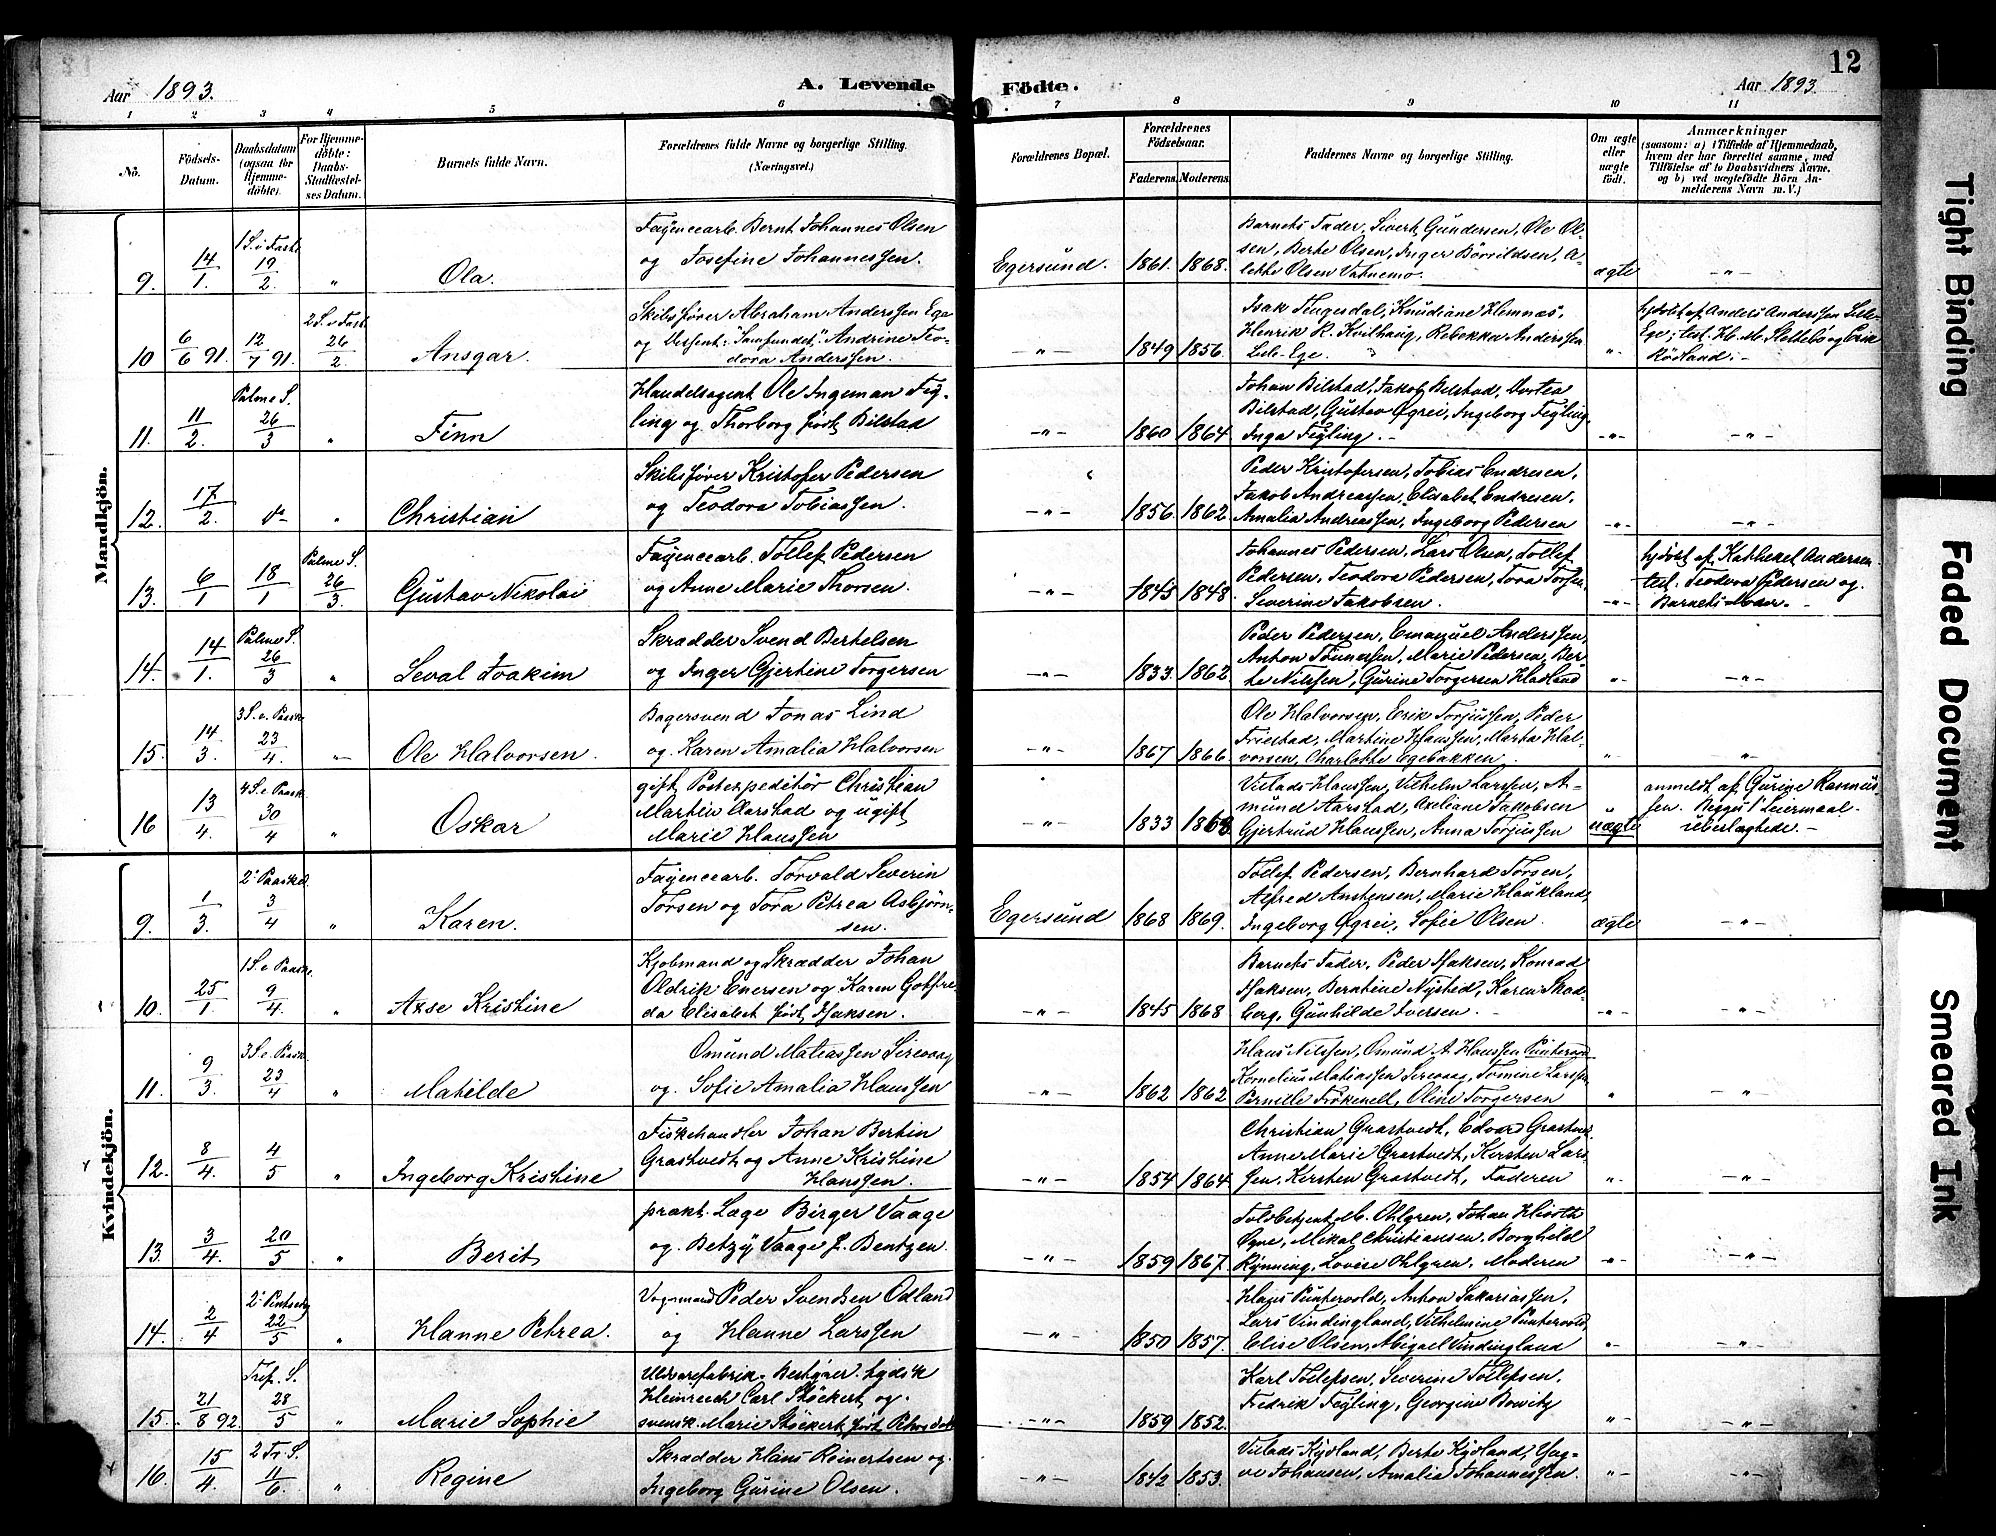 12
Aar 1893.
A. Levende
Födte.
Aar 1893
1 2 3 4 5 6 7 8 9 10 11
No.
Födsels-
Datum.
Daabsdatum
(ogsaa for
Hjemme-
döbte).
For Hjemme-
döbte:
Daabs-
Stadfæstel-
ses Datum.
Barnets fulde Navn.
Forældrenes fulde Navne og borgerlige Stilling.
(Næringsvei.)
Forældrenes Bopæl.
Forældrenes
Födselsaar.
Faderens. Moderens.
Faddernes Navne og borgerlige Stilling.
Om ægte
eller
uægte
födt.
Anmærkninger
(saasom: a) i Tilfælde af Hjemmedaab,
hvem der har forrettet samme, med
Tilföielse af to Daabsvidners Navne,
og b) ved uægtefödte Börn An-
melderens Navn m. V.)
Mandkjön.
9. 14/1. 1 S. i Faste 19/2. " Ola.
Fayencearb. Bernt Johannes Olsen
og Josefine Johannessen.
Egersund. 1861. 1868.
Barnets Fader, Sivert Gundersen, Ole Ol-
sen, Berte Olsen, Inger Börrildsen, A-
lette Olsen Vatnemo.
ægte -"-
10 6/6 91. 12/7 91. 2 S. i Faste 26/2. Ansgar.
Skibsfører Abraham Anderssen Ege
og "Samfundet". Andrine Teo-
dora Anderssen.
-"- 1849 1856.
Isak Tengesdal, Knudiane Hemnes,
Henrik K. Kvilhaug, Rebekka Anderssen
Lile-Ege.
"
hjdöbt af Anders Anderssen Lille-
Ege; test. H. M. Slettebø og Erik
Rödland. -
11. 11/2. Palme S. 26/3 " Finn
Handelsagent Ole Ingeman Feg-
ling og Thorborg født Bilstad
-"- 1860 1864
Johan Bilstad, Jakob Bilstad, Dortea
Bilstad, Gustav Øgrei, Ingeborg Fegling,
Inga Fegling. -
-"- -"-
12. 17/2. " Christian
Skibsfører Kristofer Pedersen
og Teodora Tobiassen.
-"- 1856. 1862.
Peder Kristofersen, Tobias Endresen,
Jakob Andreassen, Elisabet Endresen,
Amalia Andreassen, Ingeborg Pedersen
-"- -"-
13. 6/1 18/1 Palme S. 26/3. Gustav Nikolai
Fayencearb. Tollef Pedersen
og Anne Marie Thorsen.
-"- 1845 1848.
Johannes Pedersen, Lars Olsen, Tollef
Pedersen, Teodora Pedersen, Tora Torsen,
Severine Jakobsen.
-"-
hjdöbt af Kathinel Andersen
test. Teodora Pedersen og
Barnets Moer. -
14. 14/1. Palme S. 26/3 " Seval Joakim
Skrædder Svend Bertelsen
og Inger Gjertine Torgersen
-"- 1833. 1862
Peder Pedersen, Emanuel Anderssen,
Anton Tönnessen, Marie Pedersen, Ber-
te Nilssen, Gurine Torgersen Hadland
-"- -"-
15. 14/3. 3 S. e. Paaske 23/4. -"- Ole Halvorsen.
Bagersvend Jonas Lind
og Karen Amalia Halvorsen
-"- 1867 1866
Ole Halvorsen, Erik Torjussen, Peder
Friestad, Martine Hanssen, Marta Hal-
vorsen, Charlotte Egebakken.
" "-
16 13/4. 4 S. e. Paask. 30/4 " Oskar
gift Postexpeditör Christian
Martin Aarstad og ugift
Marie Hanssen
-"- 1833 1868
Villads Hanssen, Vilhelm Larsen, A-
mund Aarstad, Axeliane Jakobsen
Gjertrud Hanssen, Anna Torjussen
uægte
anmeldt af Gurine Rasmus-
sen. Begges 1ste Leiermaal
uberygtede. -
Kvindekjön.
9. 1/3. 2. Paasked. 3/4 " Karen.
Fayencearb. Torvald Severin
Torsen og Tora Petrea Asbjørn-
sen.
Egersund 1868 1869.
Tollef Pedersen, Bernhard Torsen,
Alfred Anstensen, Marie Haukland,
Ingeborg Øgrei, Sofie Olsen.
ægte -"-
10. 25/1. 1 S. e Paaske. 9/4. " Axse Kristine
Kjøbmand og Skrædder Johan
Oldrik Enersen og Karen Gotfre-
da Elisabet født Isaksen.
-"- 1845 1868
Barnets Fader, Peder Isaksen, Konrad
Isaksen, Berntine Nysted, Karen Skad-
berg, Gunhilde Iversen.
-"- -"-
11. 9/3. 3 S. e. Paaske 23/4 " Matilde
Omund Matiassen Sirevaag
og Sofie Amalia Hanssen
-"- 1862 1862
Hans Nilssen, Omund A. Hanssen
Kornelius Matiassen Sirevaag, Tomine Larssen,
Pernille Frökenell, Oline Torgersen
" -"-
12. 8/4. 4/5 " Ingeborg Kristine
Fiskehandler Johan Bertin
Grastvedt og Anne Kristine
Hanssen.
-"- 1854 1864
Christian Grastvedt, Edvard Grastvedt
Anne Marie Grastvedt, Kirsten Lars-
sen, Kersten Grastvedt, Faderen
"- -"-
13. 3/4. 20/5 " Berit
prakt. Læge Birger Vaage
og Betzy Vaage f. Bentzen.
-"- 1859 1867.
Toldbetjent M. Ohlgren, Johan Hiorth
Øgne, Mikal Christiansen, Borghild
Rynning, Lovise Ohlgren, Moderen
-"- -"-
14. 2/4 2. Pintsedg 22/5 " Hanne Petrea.
Vognmand Peder Svendsen Odland
og Hanne Larssen
-"- 1850 1857.
Hans Puntervold, Anton Sakariassen,
Lars Vindingland, Vilhelmine Puntervold,
Elise Olsen, Abigael Vindingland
"- -"-
15. 21/8 92. Tref. S. 28/5 " Marie Sophie
Uldvarefabrik. Bestyrer. tydsk
Heinrich Carl Stöckert og
svensk. Marie Stöckert født
-"- 1859 1852.
Karl Tollefsen, Severine Tollefsen,
Fredrik Fegling, Georgine Bowitz
"- -"-
16. 15/4. 2 Tr. S. 11/6. " Regine
Skrædder Hans Reinertsen og
Ingeborg Gurine Olsen.
-"- 1842 1853.
Villads Kydland, Berte Kydland, Yng-
ve Johansen, Amalia Johannessen.
"- -"-
Tight Binding
Faded Document
Smeared Ink